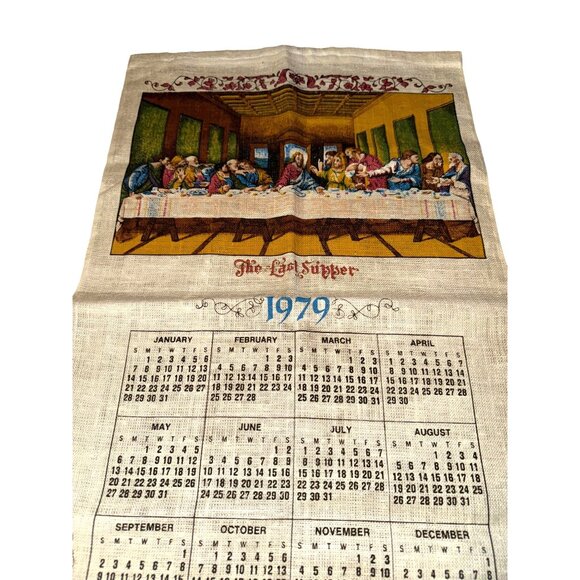 The Last Supper
1979
JANUARY FEBRUARY MARCH APRIL
S M T W T F S S M T W T F S S M T W T F S S M T W T F S
1 2 3 4 5 6 1 2 3 1 2 3 1 2 3 4 5 6 7
7 8 9 10 11 12 13 4 5 6 7 8 9 10 4 5 6 7 8 9 10 8 9 10 11 12 13 14
14 15 16 17 18 19 20 11 12 13 14 15 16 17 11 12 13 14 15 16 17 15 16 17 18 19 20 21
21 22 23 24 25 26 27 18 19 20 21 22 23 24 18 19 20 21 22 23 24 22 23 24 25 26 27 28
28 29 30 31 25 26 27 28 25 26 27 28 29 30 31 29 30
MAY JUNE JULY AUGUST
S M T W T F S S M T W T F S S M T W T F S S M T W T F S
1 2 3 4 5 1 2 1 2 3 4 5 6 7 1 2 3 4
6 7 8 9 10 11 12 3 4 5 6 7 8 9 8 9 10 11 12 13 14 5 6 7 8 9 10 11
13 14 15 16 17 18 19 10 11 12 13 14 15 16 15 16 17 18 19 20 21 12 13 14 15 16 17 18
20 21 22 23 24 25 26 17 18 19 20 21 22 23 22 23 24 25 26 27 28 19 20 21 22 23 24 25
27 28 29 30 31 24 25 26 27 28 29 30 29 30 31 26 27 28 29 30 31
SEPTEMBER OCTOBER NOVEMBER DECEMBER
S M T W T F S S M T W T F S S M T W T F S S M T W T F S
1 1 2 3 4 5 6 1 2 3 1
2 3 4 5 6 7 8 7 8 9 10 11 12 13 4 5 6 7 8 9 10 2 3 4 5 6 7 8